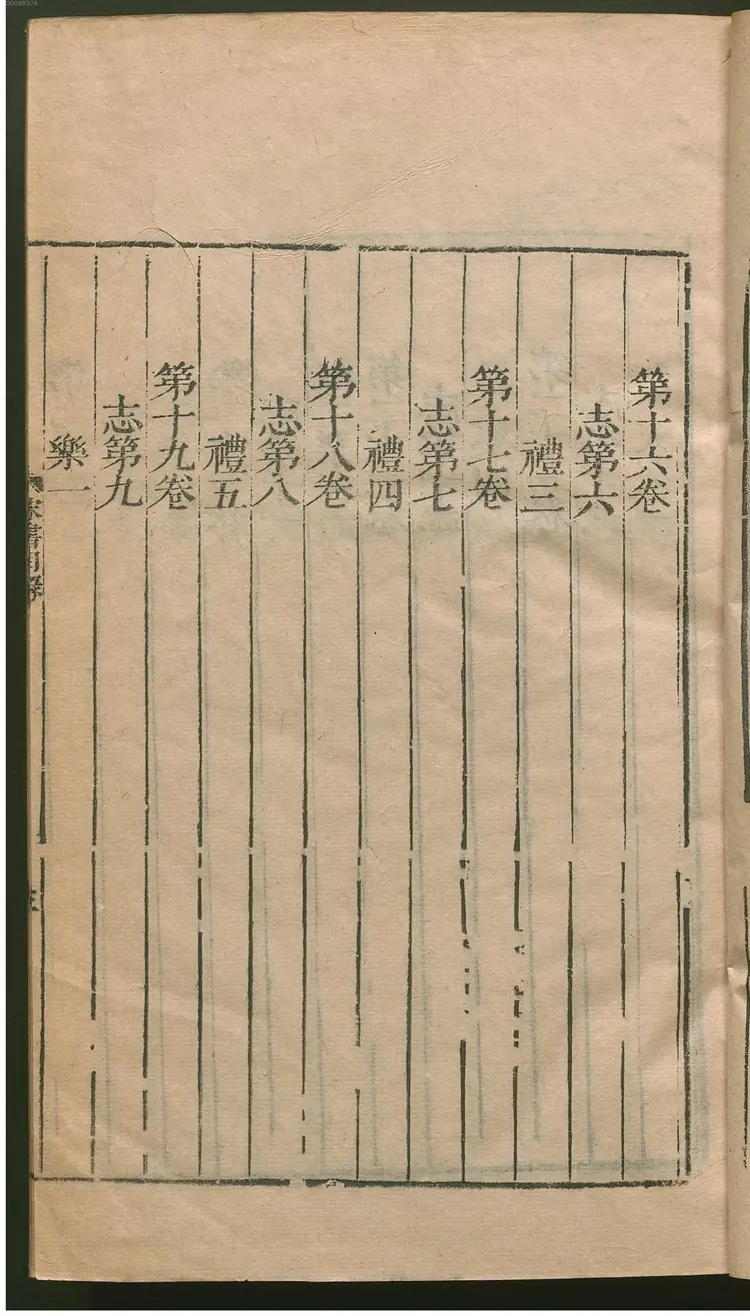 第十六卷
志第六
禮三
第十七卷
志第七
禮四
第十八卷
志第八
禮五
第十九卷
志第九
樂一